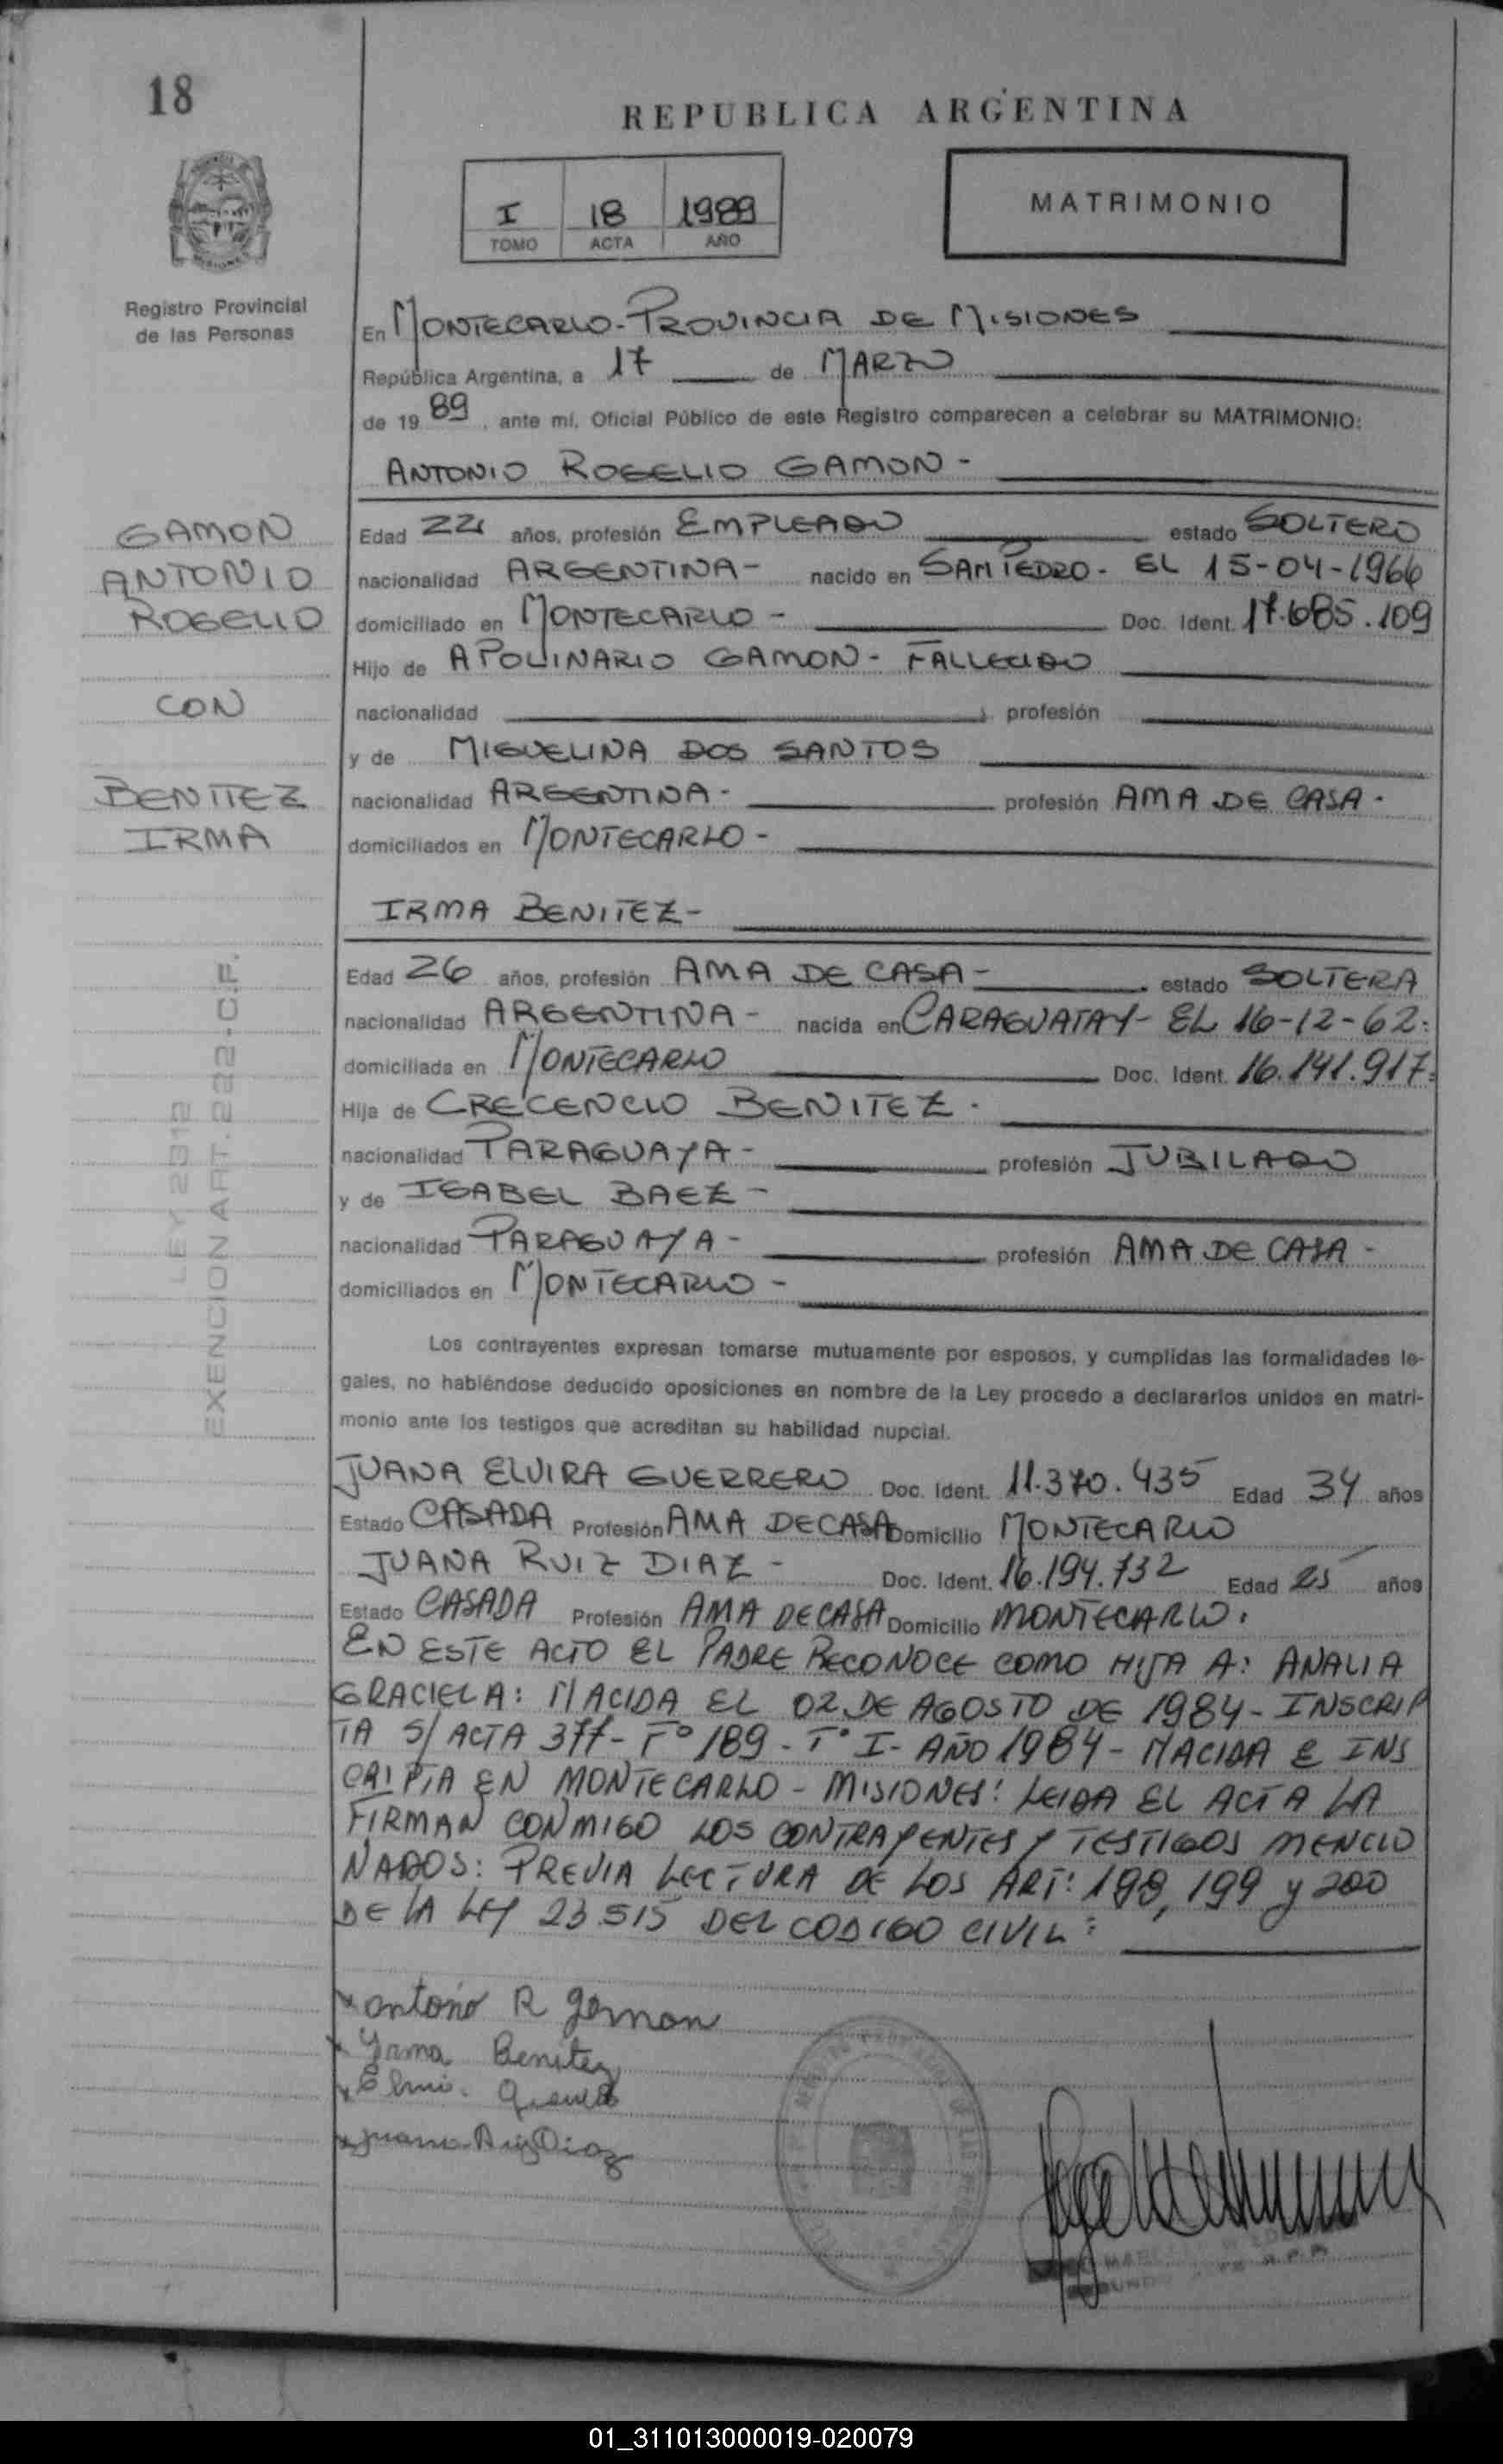 18
REPUBLICA ARGENTINA
I 18 1989
TOMO ACTA AÑO
MATRIMONIO
Registro Provincial
de las Personas
En MONTECARLO-PROVINCIA DE MISIONES
República Argentina, a 17 de MARZO
de 19 89, ante mí, Oficial Público de este Registro comparecen a celebrar su MATRIMONIO:
ANTONIO ROGELIO GAMON -
GAMON
ANTONIO
ROGELIO
CON
BENITEZ
IRMA
LEY 2312
EXENCION ART. 222-C.F.
Edad 22 años, profesión EMPLEADO estado SOLTERO
nacionalidad ARGENTINA - nacido en SAN PEDRO - EL 15-04-1966
domiciliado en MONTECARLO - Doc. Ident. 17.685.109
Hijo de APOLINARIO GAMON - FALLECIDO
nacionalidad profesión
y de MIGUELINA DOS SANTOS
nacionalidad ARGENTINA - profesión AMA DE CASA -
domiciliados en MONTECARLO -
IRMA BENITEZ -
Edad 26 años, profesión AMA DE CASA - estado SOLTERA
nacionalidad ARGENTINA - nacida en CARAGUATAY - EL 16-12-62.
domiciliada en MONTECARLO Doc. Ident. 16.141.917.
Hija de CRECENCIO BENITEZ -
nacionalidad PARAGUAYA - profesión JUBILADO
y de ISABEL BAEZ -
nacionalidad PARAGUAYA - profesión AMA DE CASA -
domiciliados en MONTECARLO -
Los contrayentes expresan tomarse mutuamente por esposos, y cumplidas las formalidades le-
gales, no habiéndose deducido oposiciones en nombre de la Ley procedo a declararlos unidos en matri-
monio ante los testigos que acreditan su habilidad nupcial.
JUANA ELVIRA GUERRERO Doc. Ident. 11.370.435 Edad 34 años
Estado CASADA Profesión AMA DE CASA Domicilio MONTECARLO
JUANA RUIZ DIAZ - Doc. Ident. 16.194.732 Edad 25 años
Estado CASADA Profesión AMA DE CASA Domicilio MONTECARLO.
EN ESTE ACTO EL PADRE RECONOCE COMO HIJA A: ANALIA
GRACIELA: NACIDA EL 02 DE AGOSTO DE 1984 - INSCRIP
TA S/ ACTA 377 - F° 189 - T° I - AÑO 1984 - NACIDA E INS
CRIPTA EN MONTECARLO - MISIONES: LEIDA EL ACTA LA
FIRMAN CONMIGO LOS CONTRAYENTES Y TESTIGOS MENCIO
NADOS: PREVIA LECTURA DE LOS ART: 198, 199 y 200
DE LA LEY 23.515 DEL CODIGO CIVIL:
Antonio R Gamon
Yrma Benitez
Juana Ruiz Diaz
01_311013000019-020079